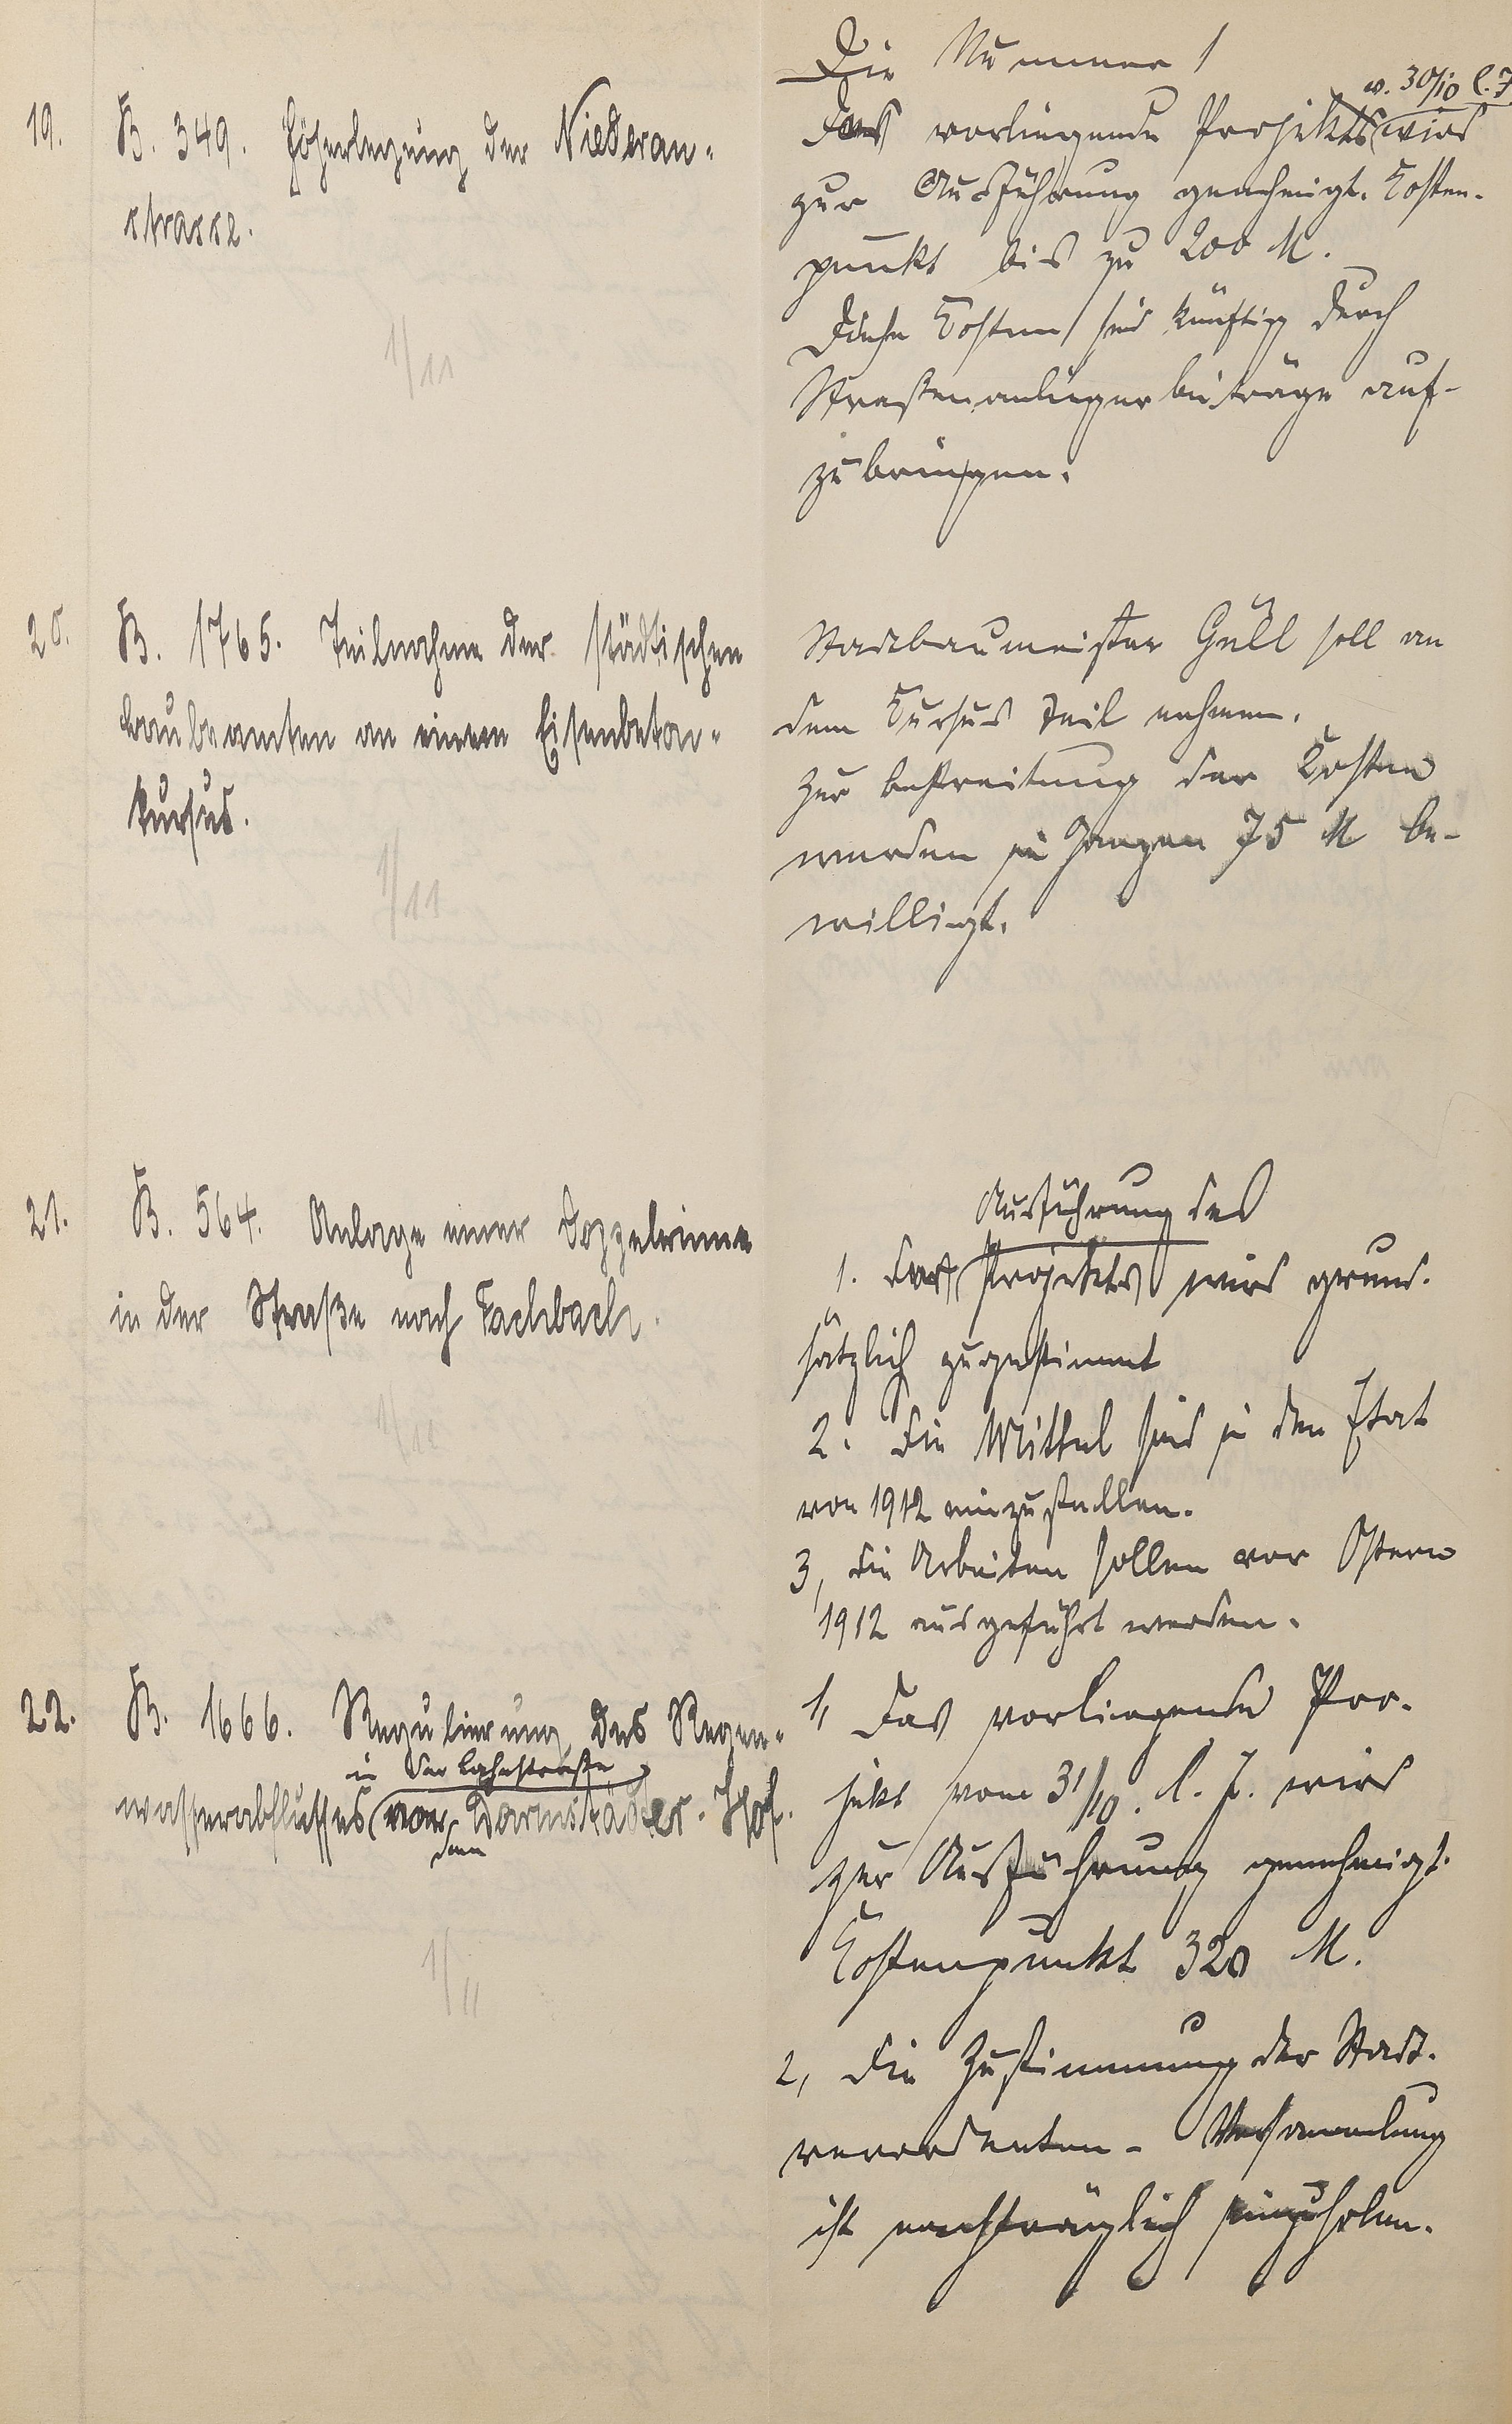 19.
B. 349. Höherlegung der Niederau-
strasse.
1/11
Die Nummer 1
v. 30/10 l. J.
Das vorliegende Projekt wird
zur Ausführung genehmigt. Kosten-
punkt bis zu 200 M.
Diese Kosten sind künftig durch
Straßenanliegerbeiträge auf-
zubringen.
20.
B. 1765. Teilnahme der städtischen
Baubeamten an einem Eisenbeton-
kursus.
1/11
Stadtbaumeister Güll soll an
dem Kursus teil nehmen.
Zur Bestreitung der Kosten
werden im Ganzen 75 M be-
willigt.
21.
B. 564. Anlage einer Doppelrinne
in der Straße nach Fachbach.
1/11
Ausführung des
1. Der Projekts wird grund-
sätzlich zugestimmt
2. Die Mittel sind in den Etat
von 1912 einzustellen.
3, Die Arbeiten sollen vor Ostern
1912 ausgeführt werden.
22.
B. 1666. Regulierung des Regen-
in der Lahnstraße
wasserabflusses vor Darmstädter-Hof.
dem
1/11
1, Das vorliegende Pro-
jekt vom 31/10. l. J. wird
zur Ausführung genehmigt.
Kostenpunkt 320 M.
2, Die Zustimmung der Stadt-
verordneten-Versammlung
ist nachträglich einzuholen.